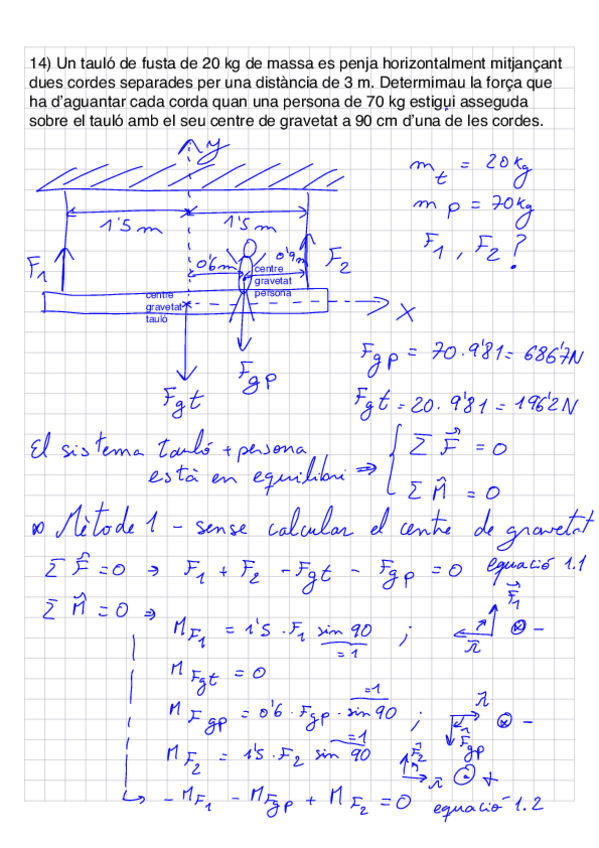 14) Un tauló de fusta de 20 kg de massa es penja horitzontalment mitjançant
dues cordes separades per una distància de 3 m. Determimau la força que
ha d'aguantar cada corda quan una persona de 70 kg estigui asseguda
sobre el tauló amb el seu centre de gravetat a 90 cm d'una de les cordes.
y
m_t = 20kg
1'5 m 1'5 m
m_p = 70kg
F_1 0'6m 0'9m F_2
F_1, F_2?
centre
gravetat
persona
centre
gravetat
tauló
X
F_gt F_gp
F_gp = 70·9'81 = 686'7N
F_gt = 20·9'81 = 196'2N
El sistema tauló + persona
està en equilibri => { Σ F⃗ = 0
Σ M⃗ = 0
Mètode 1 - sense calcular el centre de gravetat
Σ F⃗ = 0 → F_1 + F_2 - F_gt - F_gp = 0 equació 1.1
Σ M⃗ = 0 =>
M_F_1 = 1'5 · F_1 sin 90 ; r⃗ F⃗_1 ⊗ -
= 1
M_F_gt = 0
=1
M_F_gp = 0'6 · F_gp · sin 90 ; r⃗ F⃗_gp ⊗ -
=1
M_F_2 = 1'5 · F_2 sin 90 F⃗_2 r⃗ ⊙ +
- M_F_1 - M_F_gp + M_F_2 = 0 equació 1.2